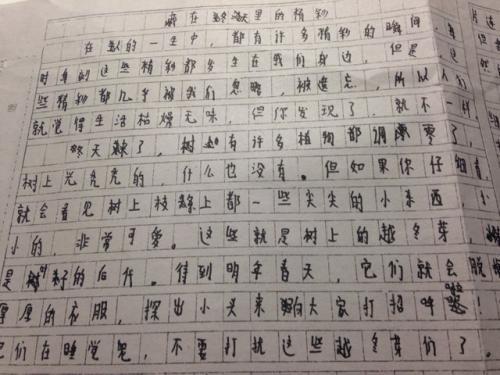 藏在 里的精彩
在 的一生中，都有许多精彩的瞬间，
时 的这些精彩都发生在我们身边，但是
些精彩都几乎被我们忽略，被遗忘，所以人们
就觉得生活枯燥无味，但你发现了，就不一样
冬天来了，树 有许多植物都凋零了，
树上光秃秃的，什么也没有。但如果你仔细看，
就会看见树上枝 上都一些尖尖的小东西
小的，非常可爱。这些就是树上的越冬芽，
是树籽的后代。待到明年春天，它们就会脱
厚厚的衣服，探出小头来 向大家打招呼 ！
它们在睡觉呢，不要打扰这些越冬芽们了。